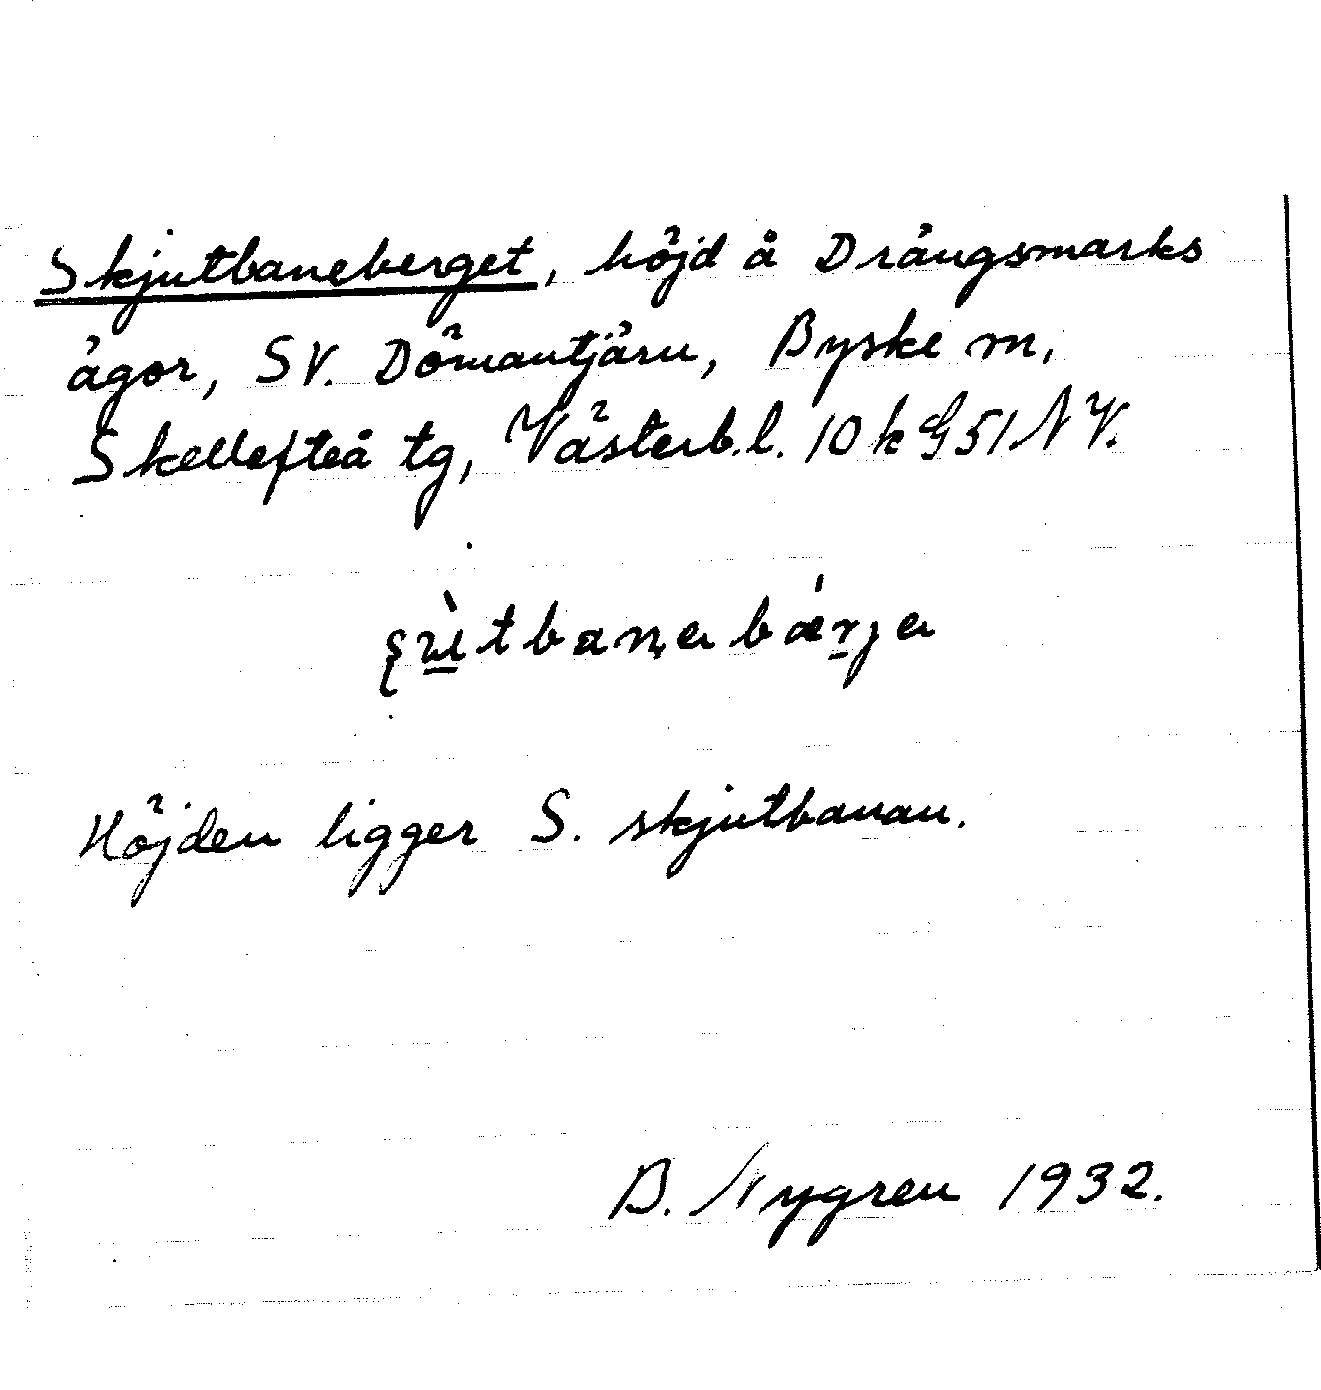 Skjutbaneberget, höjd å Drängsmarks
ägor, SV. Dömantjärn, Byske sn,
Skellefteå tg, Västerb.l. 10 k G 51 NV.
Höjden ligger S. skjutbanan.
B. Nygren 1932.